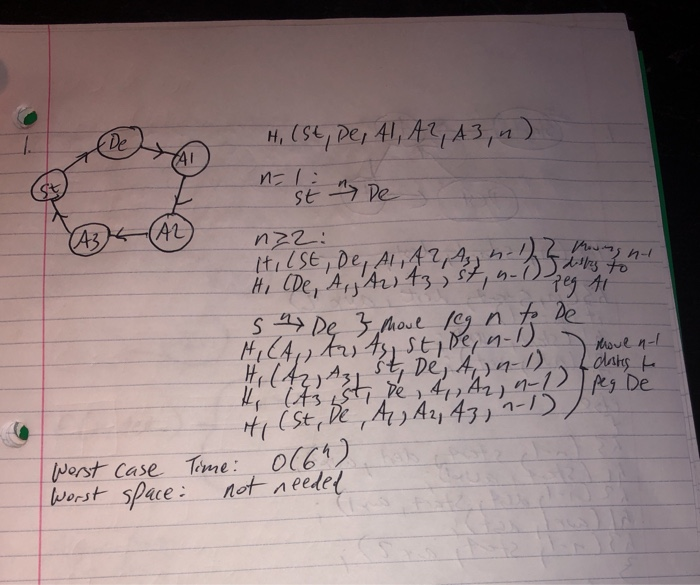 1.
De
A1
A2
A3
St
H, (St, De, A1, A2, A3, n)
n=1:
St →ⁿ De
n≥2:
H, (St, De, A1, A2, A3, n-1) } Moving n-1
H, (De, A1, A2, A3, St, n-1) } disks to
peg A1
S →ⁿ De } Move peg n to De
H, (A1, A2, A3, St, De, n-1)
H, (A2, A3, St, De, A1, n-1)
H, (A3, St, De, A1, A2, n-1)
H, (St, De, A1, A2, A3, n-1)
move n-1
disks to
peg De
Worst Case Time: O(6ⁿ)
Worst space: not needed